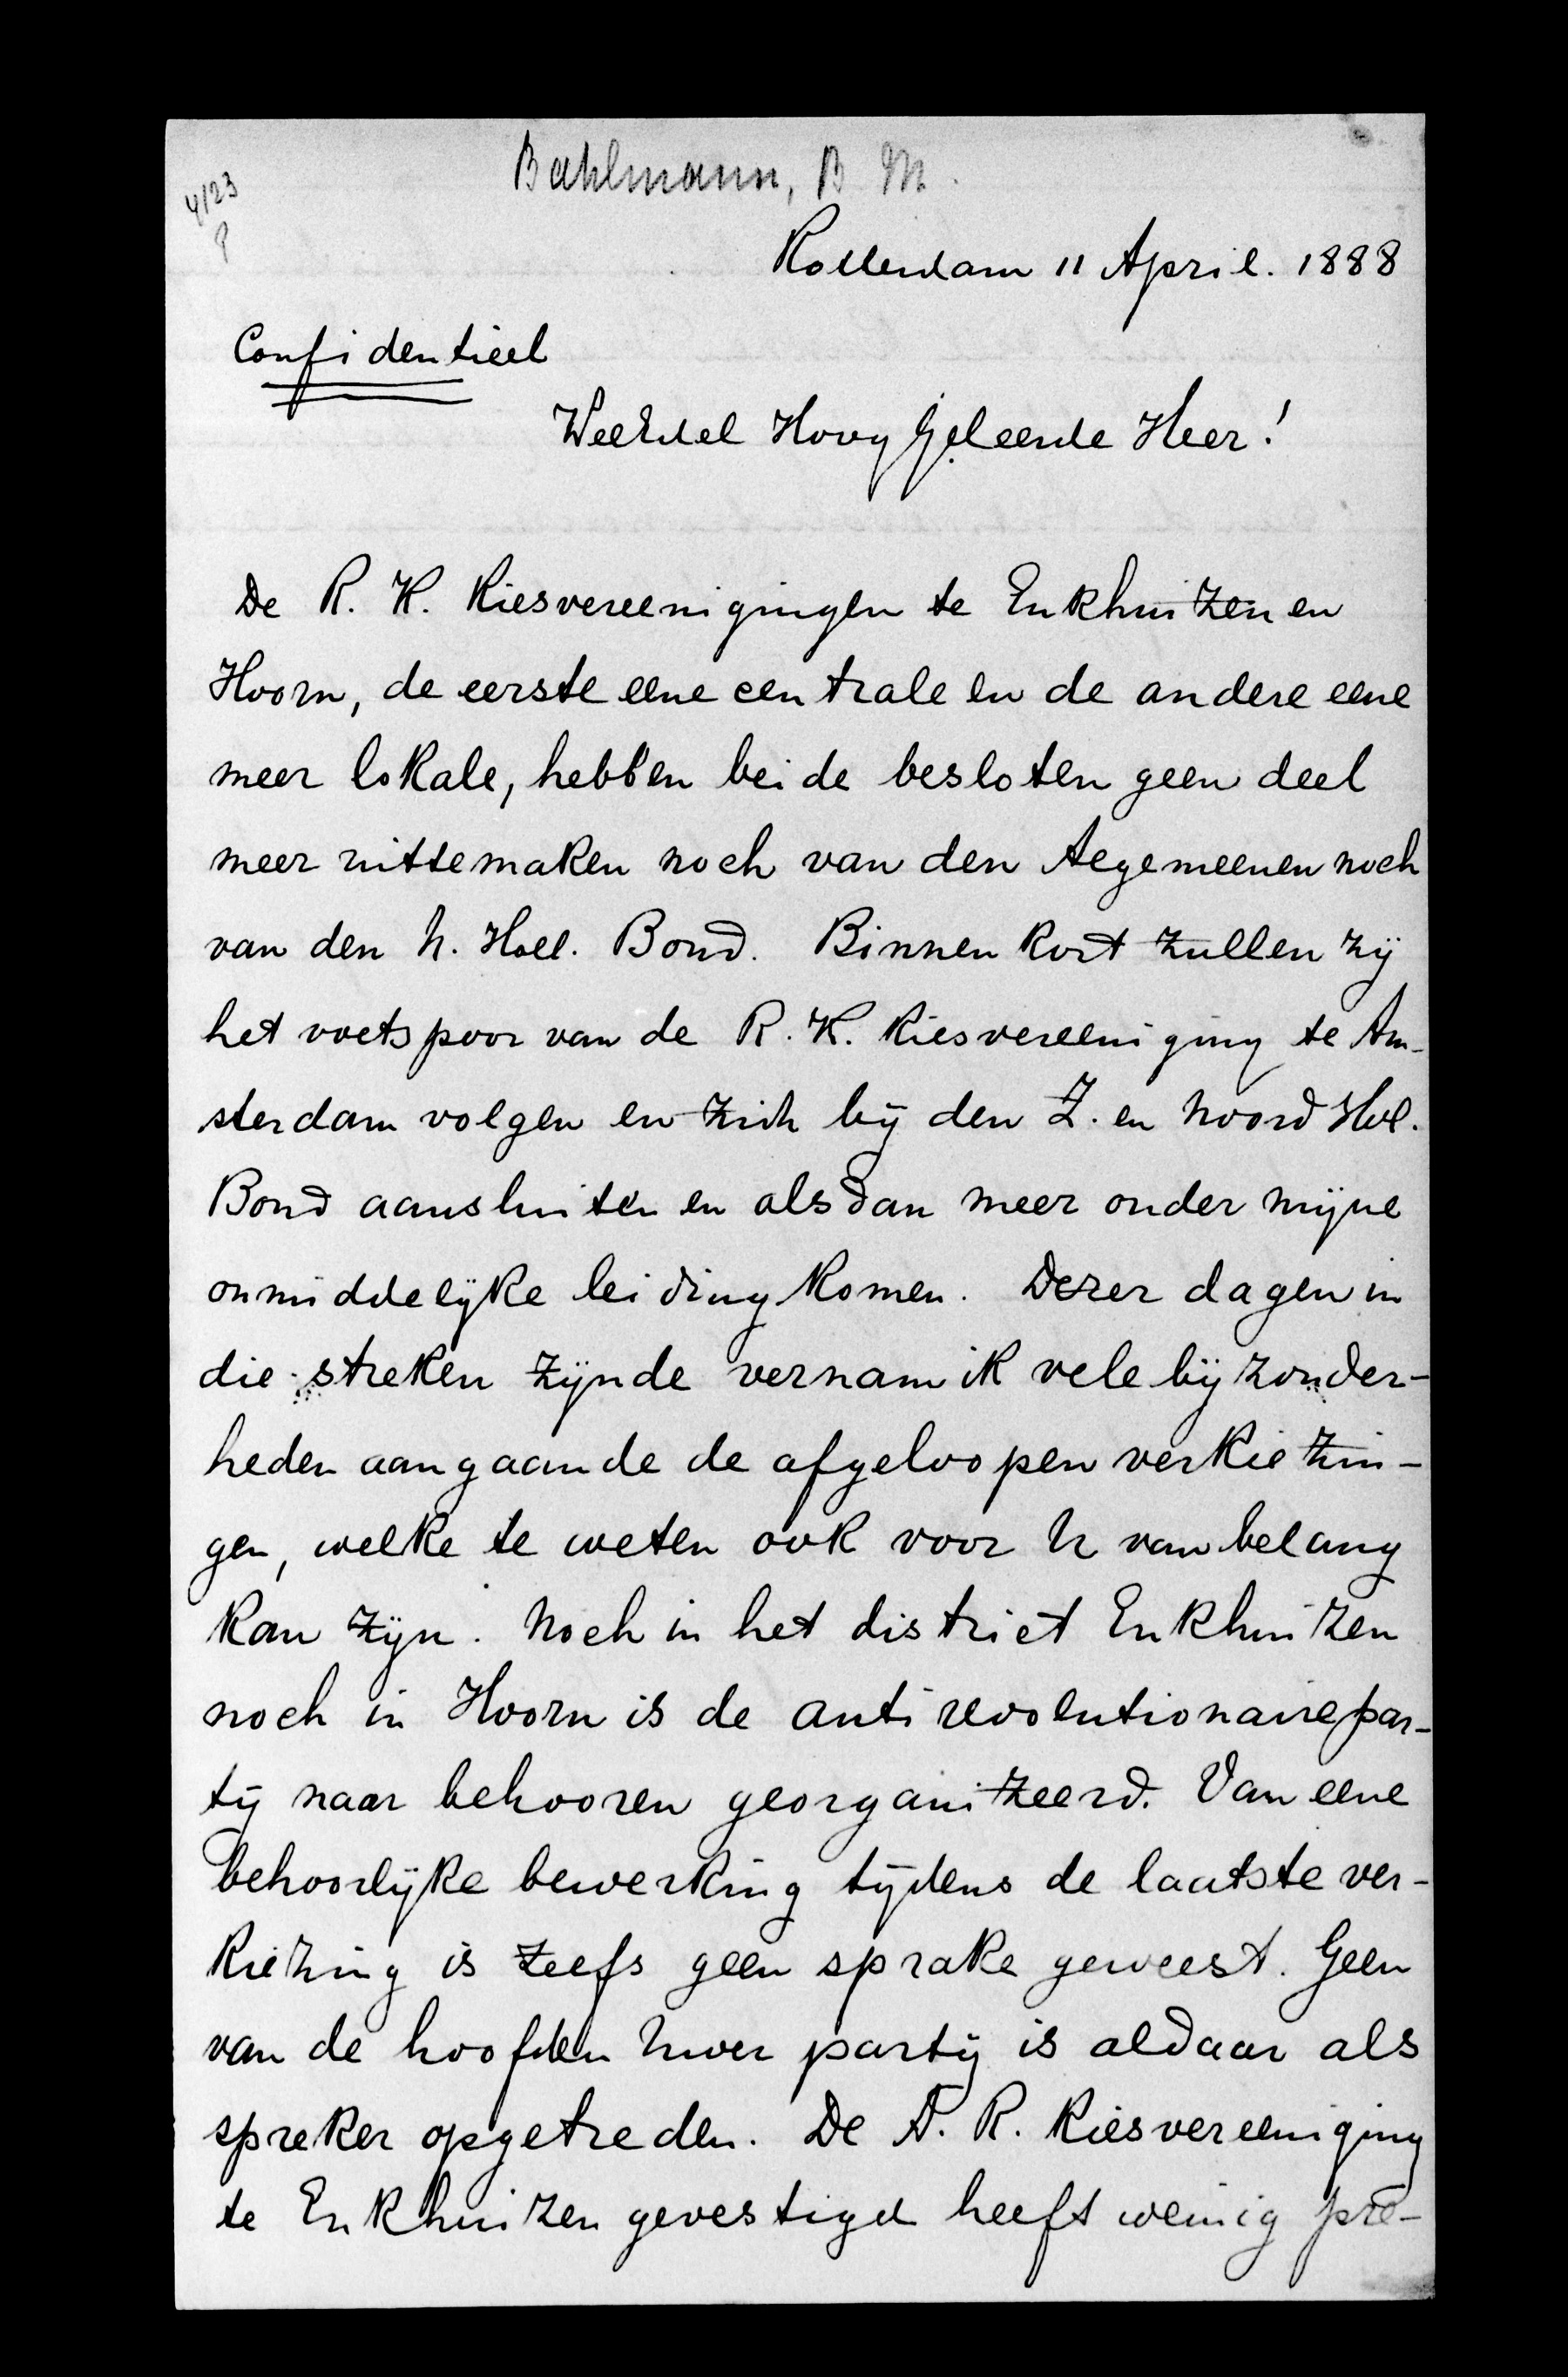 Bahlmann, B M.
4123
P
Rotterdam 11 April. 1888
Confidentieel
WelEdel HoogGeleerde Heer!
De R. K. Kiesvereenigingen te Enkhuizen en
Hoorn, de eerste eene centrale en de andere eene
meer lokale, hebben beide besloten geen deel
meer uittemaken noch van den Algemeenen noch
van den N. Holl. Bond. Binnen kort zullen zij
het voetspoor van de R. K. Kiesvereeniging te Am-
sterdam volgen en zich bij den Z. en Noord Hol.
Bond aansluiten en alsdan meer onder mijne
onmiddelijke leiding komen. Dezer dagen in
die streken zijnde vernam ik vele bijzonder-
heden aangaande de afgeloopen verkiezin-
gen, welke te weten ook voor U van belang
kan zijn. Noch in het district Enkhuizen
noch in Hoorn is de antirevolutionaire par-
tij naar behooren georganizeerd. Van eene
behoorlijke bewerking tijdens de laatste ver-
kiezing is zelfs geen sprake geweest. Geen
van de hoofden Uwer partij is aldaar als
spreker opgetreden. De A. R. Kiesvereeniging
te Enkhuizen gevestigd heeft weinig pre-